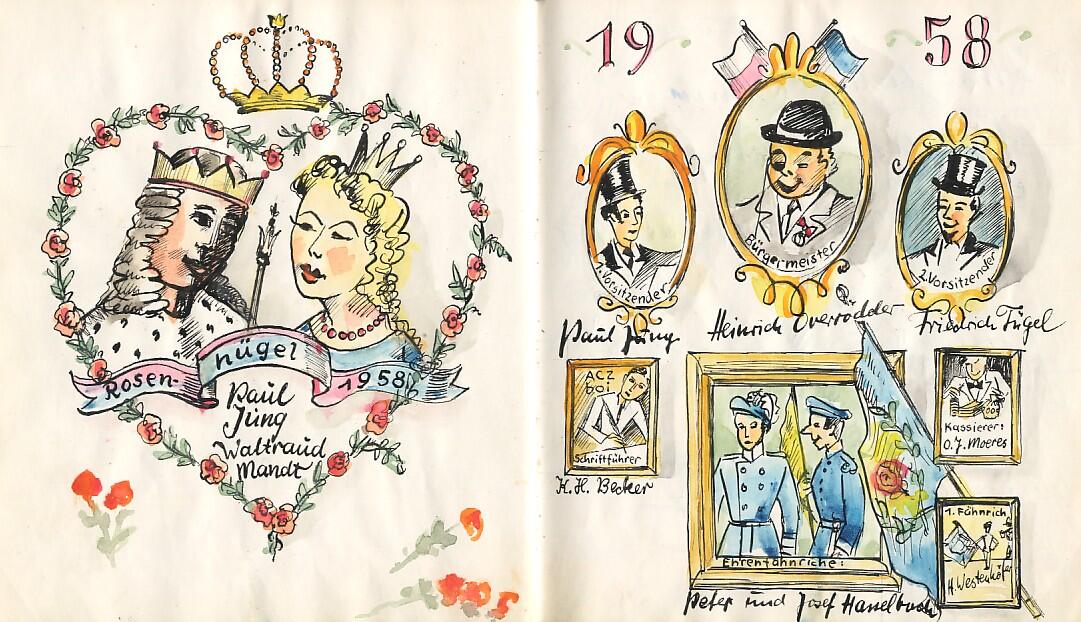 Rosen-
hügel
1958
Paul
Jüng
Waltraud
Mandt
19 58
1. Vorsitzender
Bürgermeister
2. Vorsitzender
Paul Jüng
Heinrich Overrödder
Friedrich Fügel
ACZ
boi
Schriftführer
H. H. Becker
Kassierer:
O. J. Moeres
1. Fähnrich
H. Westenhöfer
Ehrenfähnriche:
Peter und Josef Hasselbach